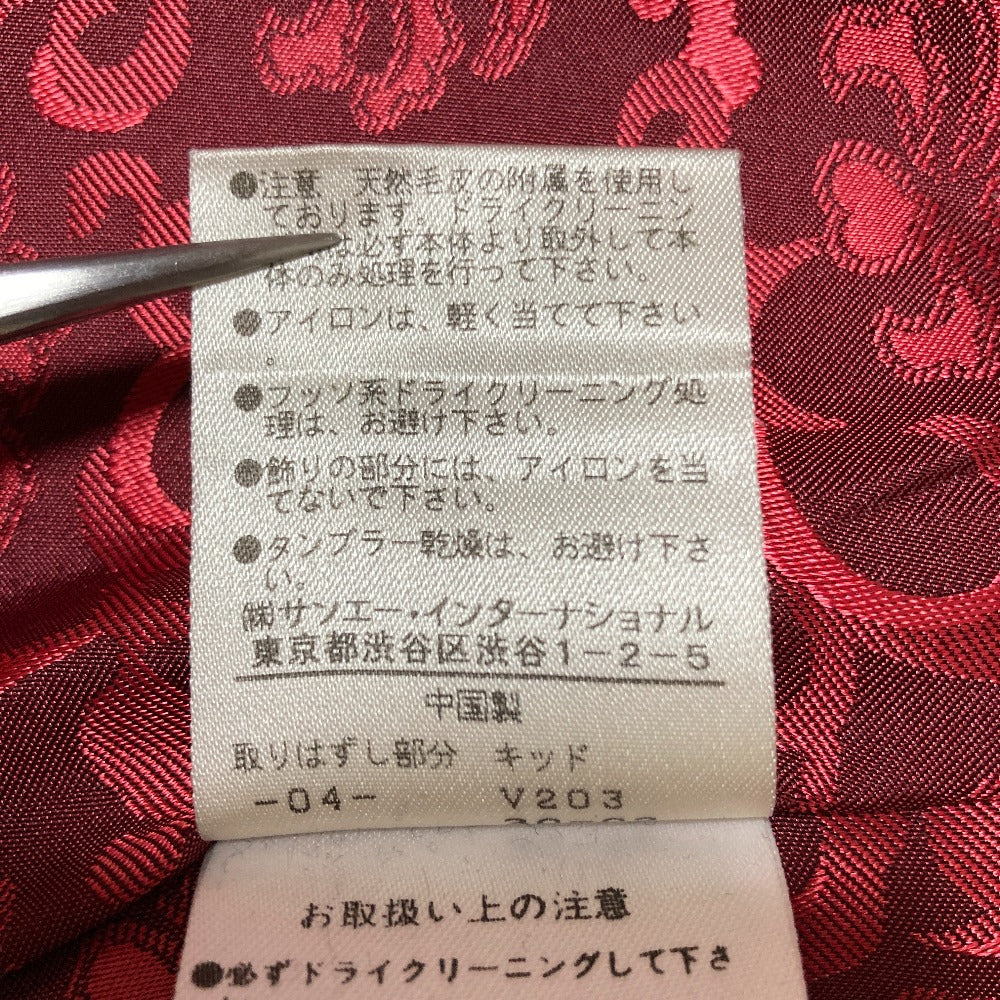 ●注意　天然毛皮の附属を使用し
ております。ドライクリーニン
は必ず本体より取外して本
体のみ処理を行って下さい。
●アイロンは、軽く当てて下さい
。
●フッソ系ドライクリーニング処
理は、お避け下さい。
●飾りの部分には、アイロンを当
てないで下さい。
●タンブラー乾燥は、お避け下さ
い。
㈱サンエー・インターナショナル
東京都渋谷区渋谷1-2-5
中国製
取りはずし部分　キッド
-04-　V203
お取扱い上の注意
●必ずドライクリーニングして下さ